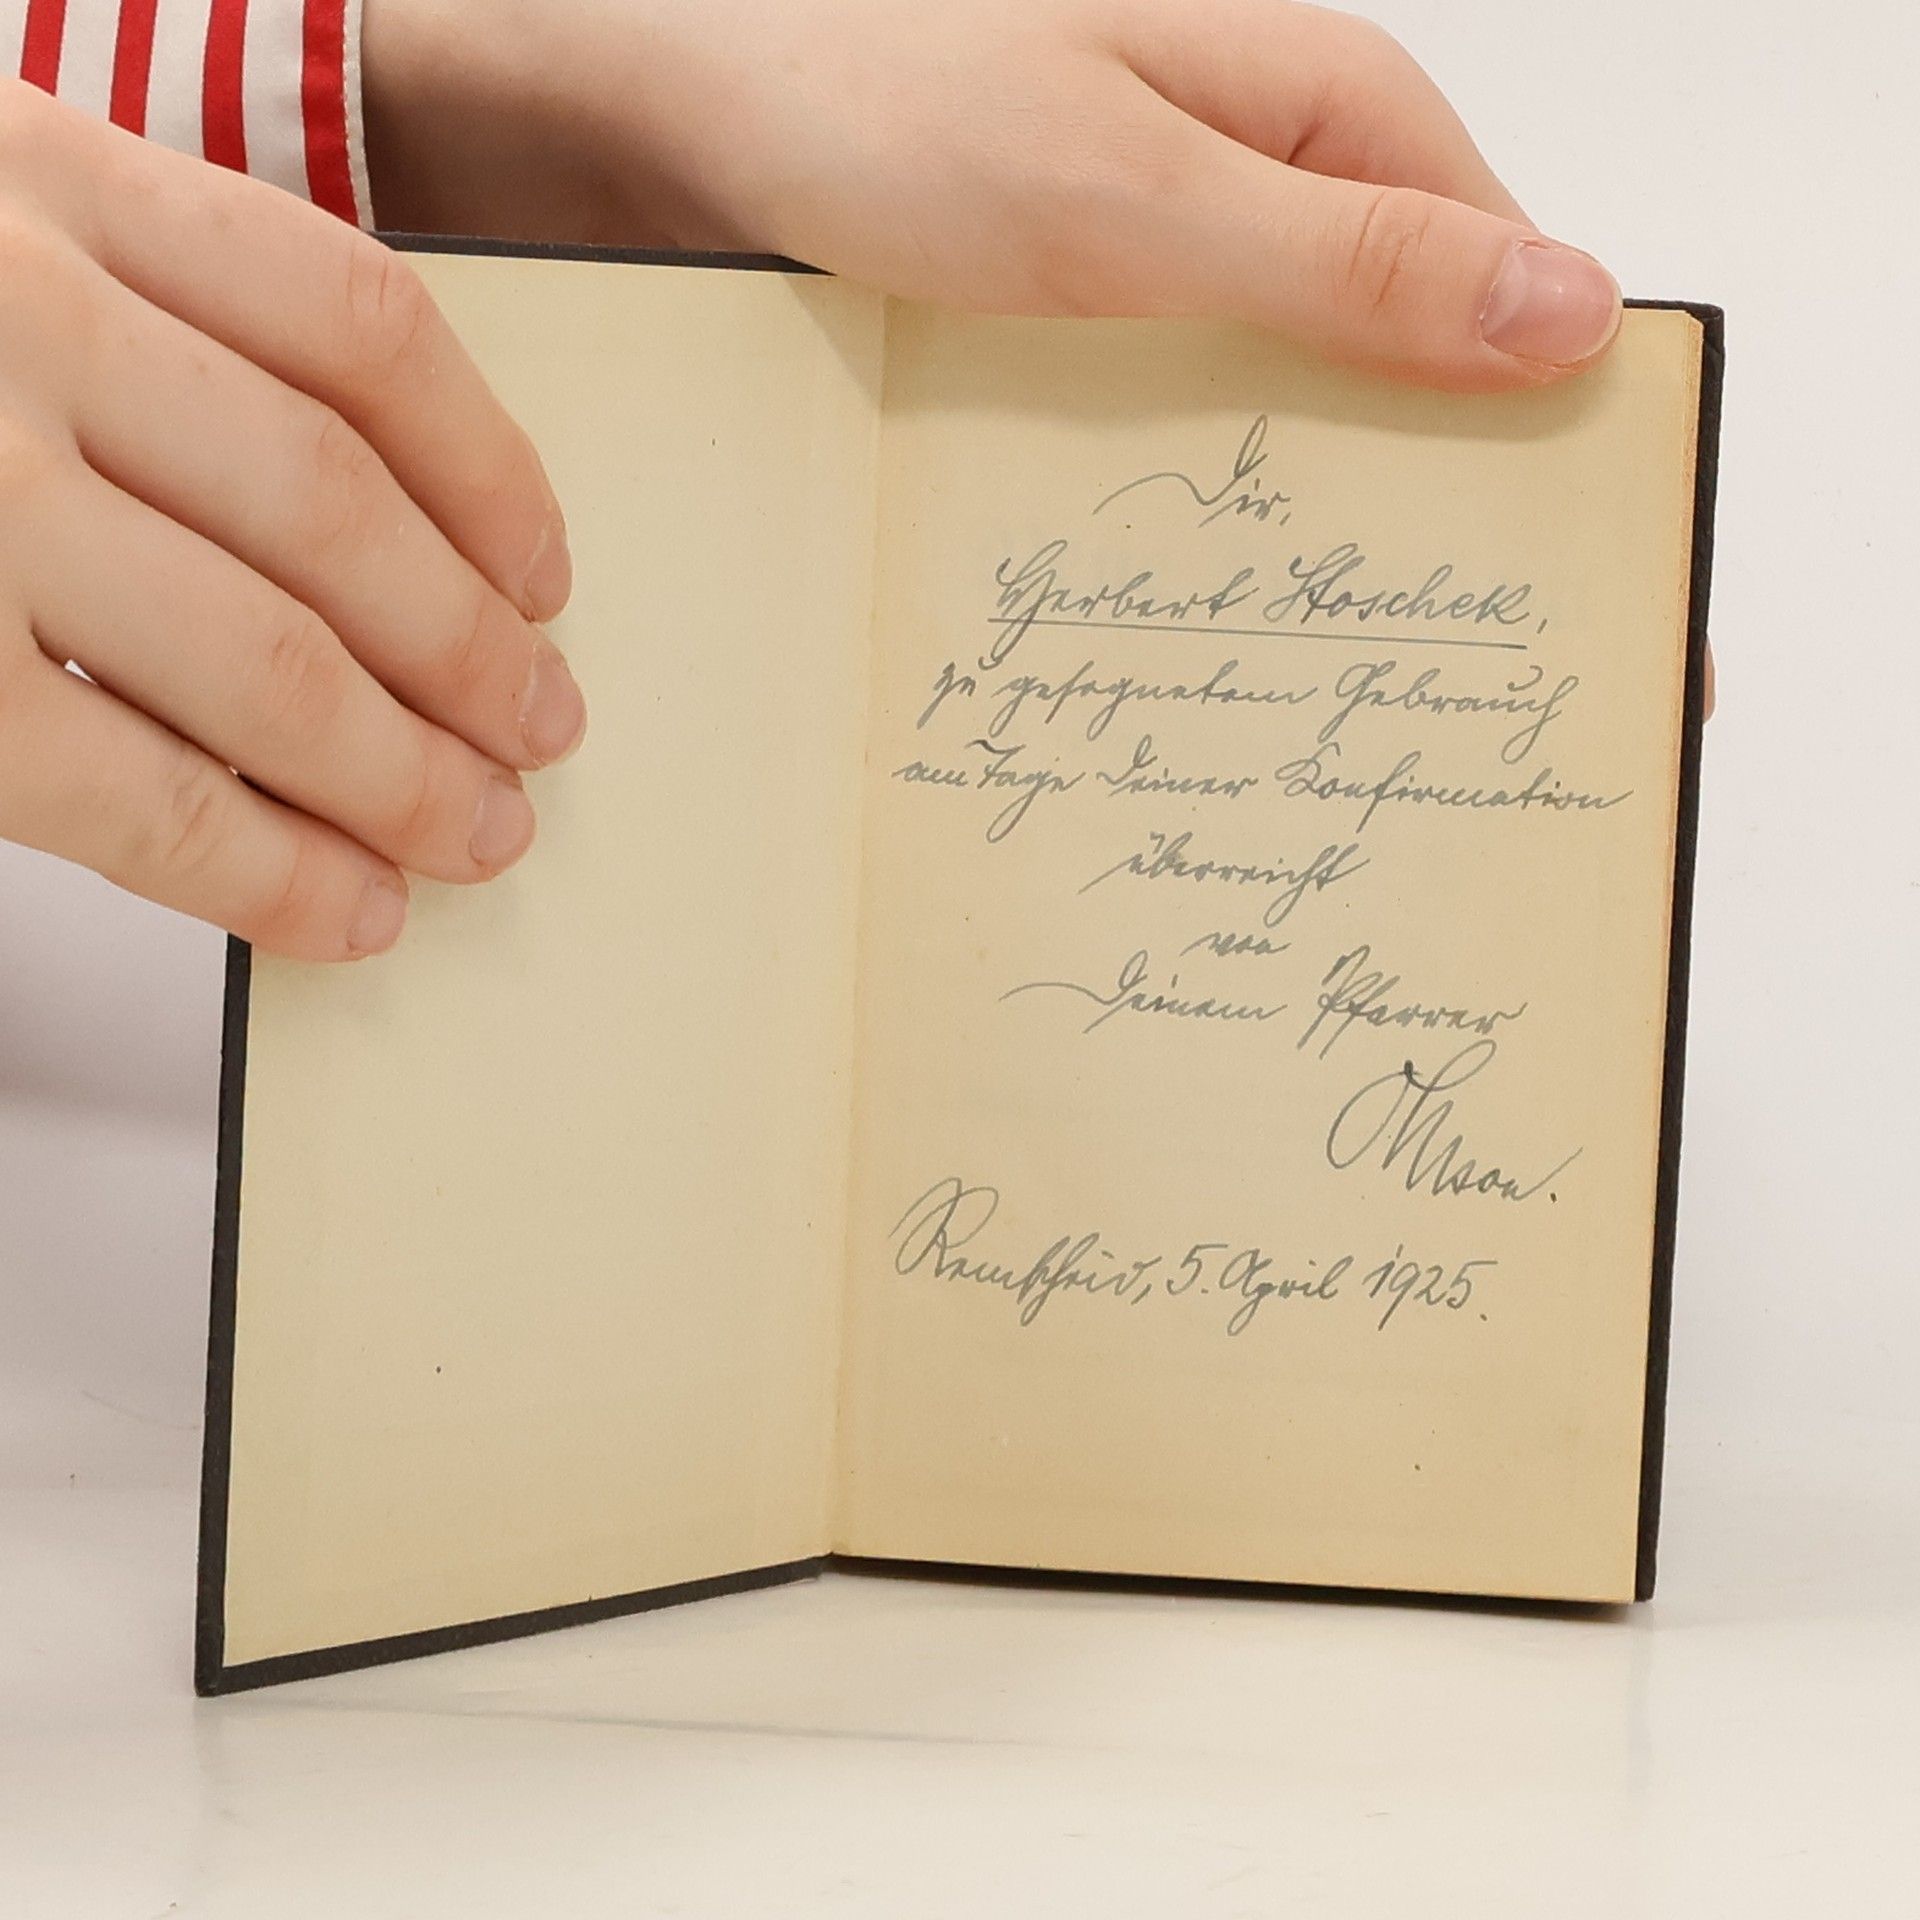 Dir,
Herbert Stoschek,
zu gesegnetem Gebrauch
am Tage Deiner Konfirmation
überreicht
von
Deinem Pfarrer
Remscheid, 5. April 1925.